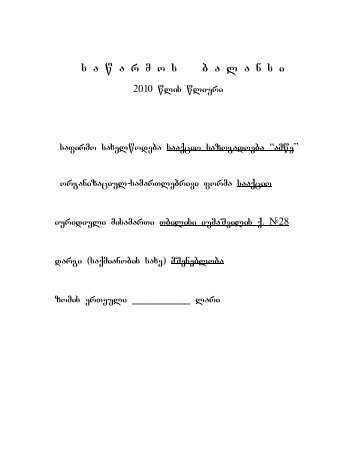 ს ა წ ა რ მ ო ს ბ ა ლ ა ნ ს ი
2010 წლის წლიური
საფირმო სახელწოდება სააქციო საზოგადოება “ამწე”
ორგანიზაციულ-სამართლებრივი ფორმა სააქციო
იურიდიული მისამართი თბილისი იუმაშევის ქ. №28
დარგი (საქმიანობის სახე) მშენებლობა
ზომის ერთეული ____________ ლარი